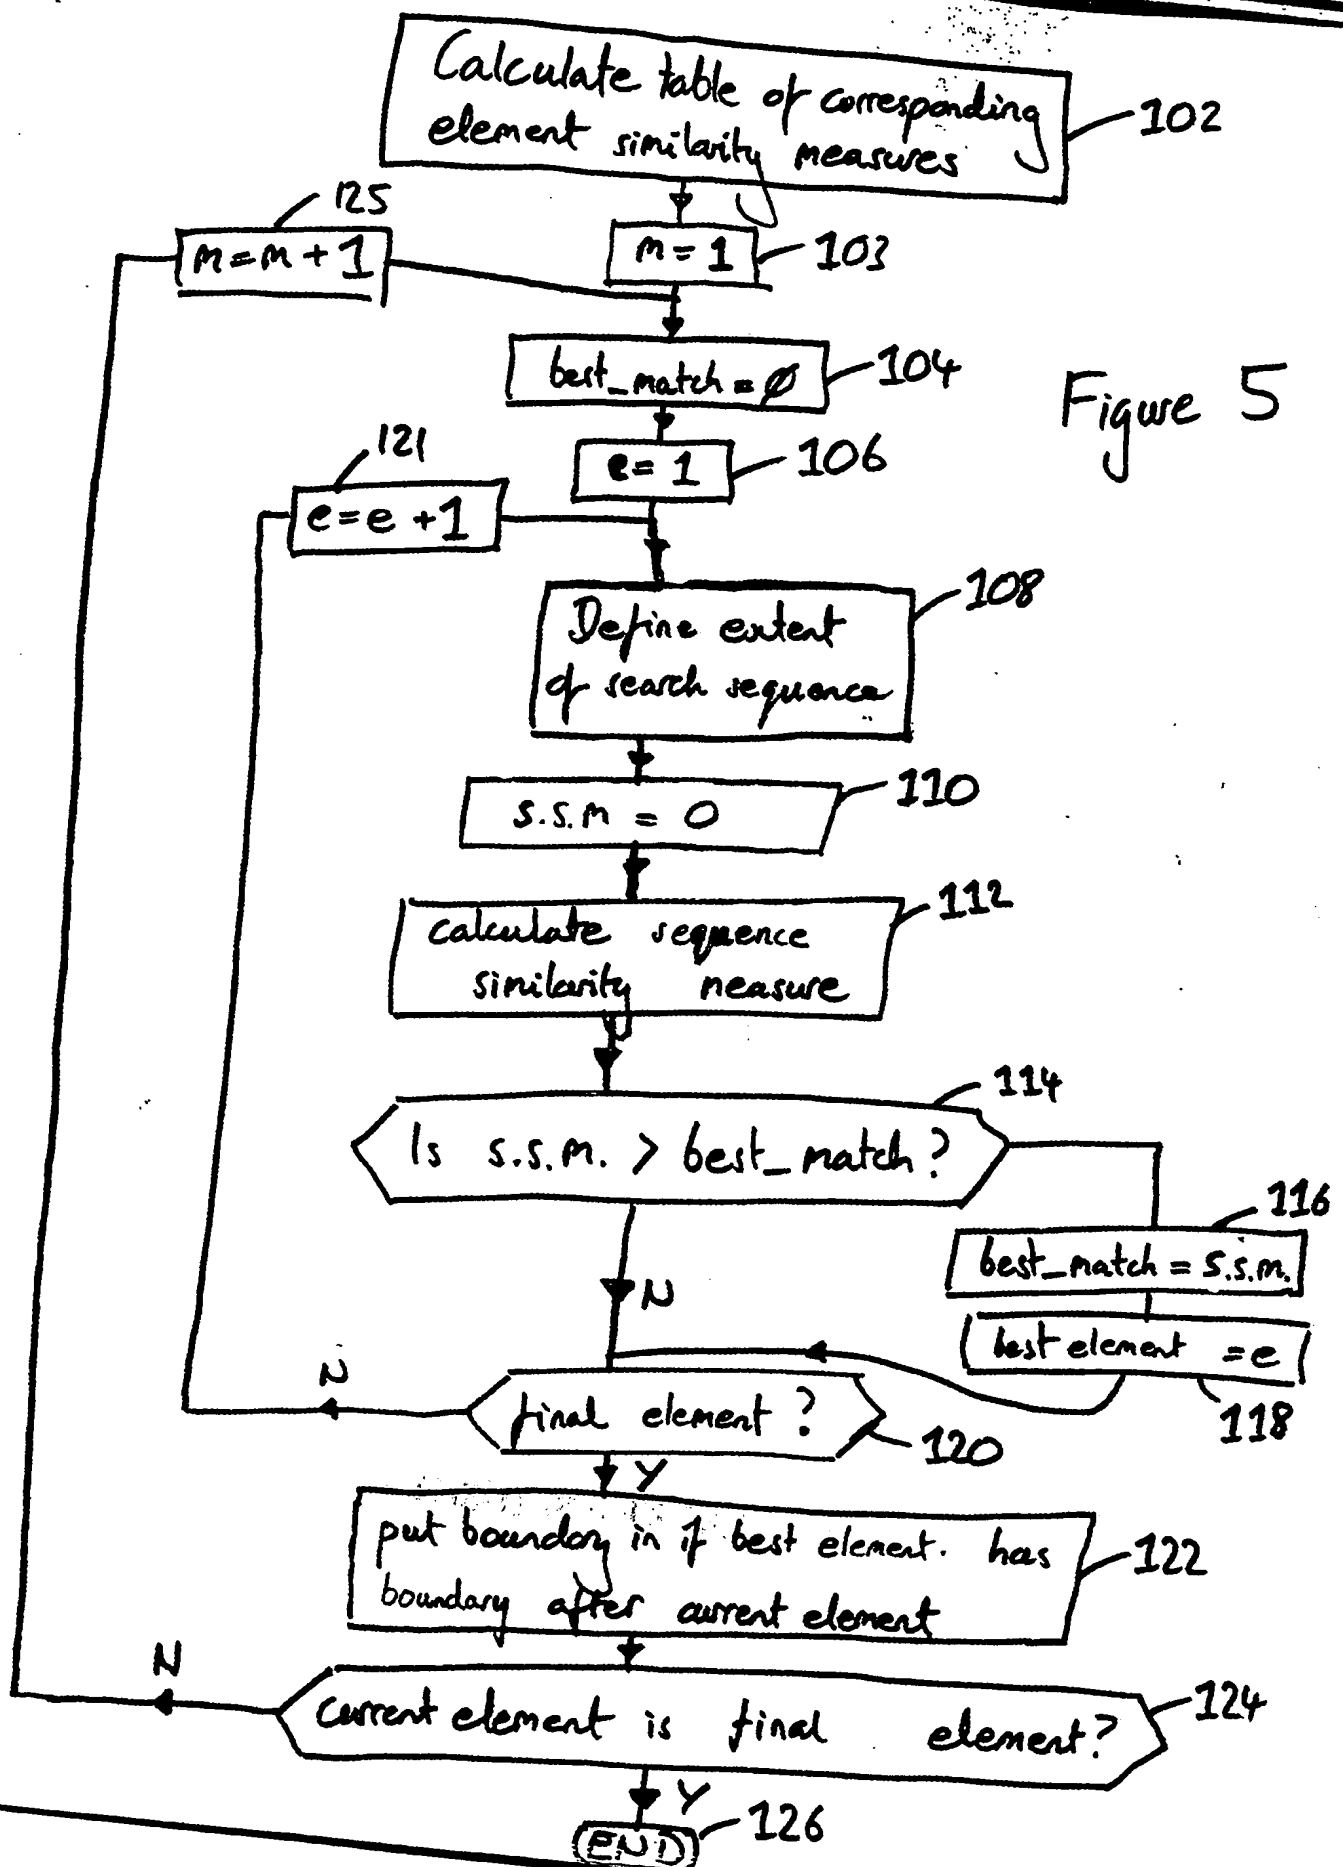 Calculate table of corresponding
element similarity measures
102
125
m=m+1
m=1
103
best_match=ø
104
Figure 5
121
e=1
106
e=e+1
108
Define extent
of search sequence
110
s.s.m = 0
112
calculate sequence
similarity measure
114
Is s.s.m. > best_match?
116
best_match = s.s.m.
N
best element = e
118
N
final element?
120
Y
put boundary in if best element. has
boundary after current element
122
N
current element is final element?
124
Y
END
126